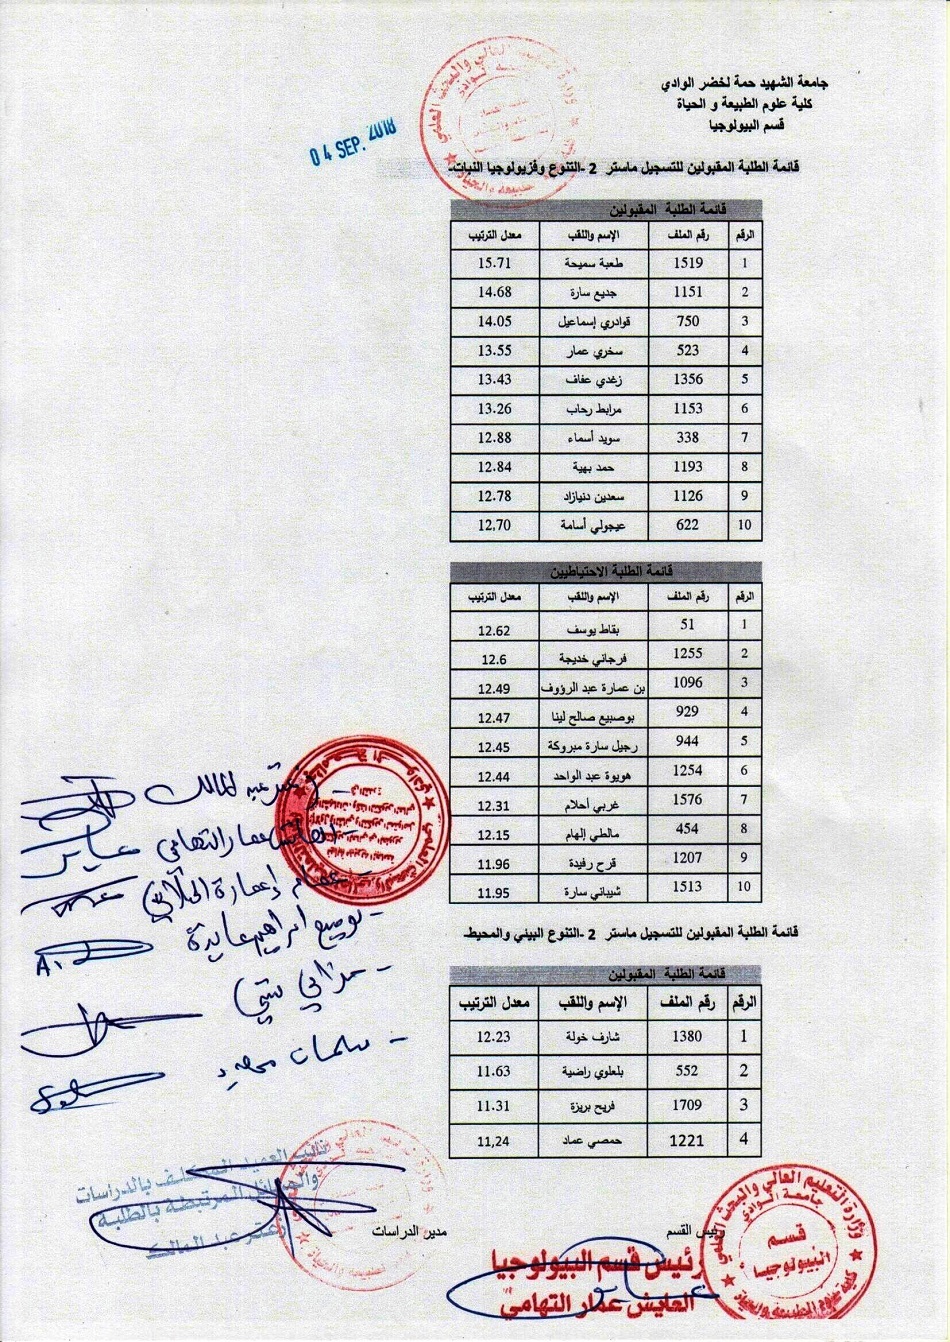 جامعة الشهيد حمة لخضر الوادي
كلية علوم الطبيعة و الحياة
قسم البيولوجيا
04 SEP. 2018
قائمة الطلبة المقبولين للتسجيل ماستر 2 -التنوع وفزيولوجيا النبات-
قائمة الطلبة المقبولين
الرقم رقم الملف الإسم واللقب معدل الترتيب
1 1519 طعبة سميحة 15.71
2 1151 جديع سارة 14.68
3 750 قوادري إسماعيل 14.05
4 523 سخري عمار 13.55
5 1356 زغدي عفاف 13.43
6 1153 مرابط رحاب 13.26
7 338 سويد أسماء 12.88
8 1193 حمد بهية 12.84
9 1126 سعدين دنيازاد 12.78
10 622 عيجولي أسامة 12,70
قائمة الطلبة الاحتياطيين
الرقم رقم الملف الإسم واللقب معدل الترتيب
1 51 بقاط يوسف 12.62
2 1255 فرجاني خديجة 12.6
3 1096 بن عمارة عبد الرؤوف 12.49
4 929 بوصبيع صالح لينا 12.47
5 944 رجيل سارة مبروكة 12.45
6 1254 هويوة عبد الواحد 12.44
7 1576 غربي أحلام 12.31
8 454 مالطي إلهام 12.15
9 1207 قرح رفيدة 11.96
10 1513 شيباني سارة 11.95
قائمة الطلبة المقبولين للتسجيل ماستر 2 -التنوع البيئي والمحيط-
قائمة الطلبة المقبولين
الرقم رقم الملف الإسم واللقب معدل الترتيب
1 1380 شارف خولة 12.23
2 552 بلعلوي راضية 11.63
3 1709 فريح بريزة 11.31
4 1221 حمصي عماد 11,24
عبد المالك
العايش عمار التهامي
نائب العميد المكلف بالدراسات
والمسائل المرتبطة بالطلبة
زعتر عبد المالك
مدير الدراسات
رئيس القسم
رئيس قسم البيولوجيا
العايش عمار التهامي
وزارة التعليم العالي والبحث العلمي
جامعة الوادي
قسم
البيولوجيا
كلية علوم الطبيعة والحياة